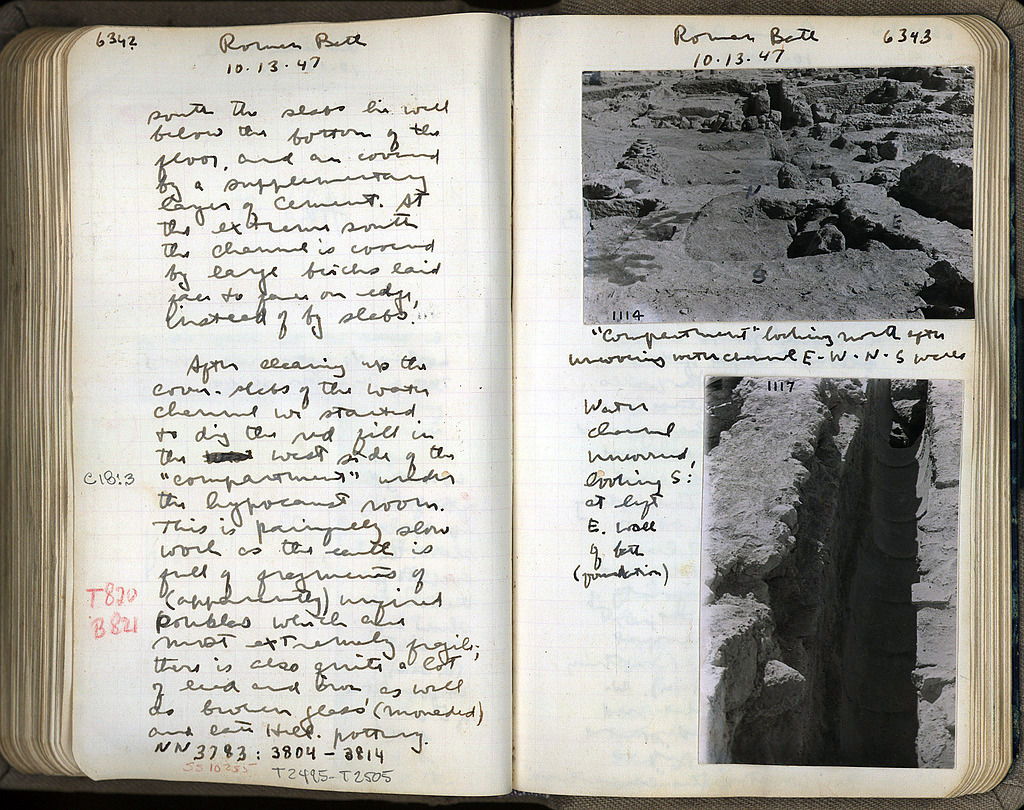 6342
Roman Bath
10.13.47
south the slabs lie well
below the bottom of the
floor, and are covered
by a supplementary
layer of cement. At
the extreme south
the channel is covered
by large bricks laid
face to face on edge,
instead of by slabs.
After cleaning up the
cover-slabs of the water
channel we started
to dig the red fill in
the west side of the
C18:3
"compartment" under
the hypocaust room.
This is painfully slow
work as the earth is
full of fragments of
T820
(apparently) unfired
B821
moulds which are
most extremely fragile;
there is also quite a lot
of lead and iron as well
as broken glass
and late Hell. pottery.
NN 3783: 3804 - 3814
SS 10255
T2495-T2505
Roman Bath
6343
10.13.47
1114
"Compartment" looking north after
uncovering water channel E-W-N-S walls
1117
Water
channel
uncovered,
looking S:
at left
E. wall
of bath
(foundation)